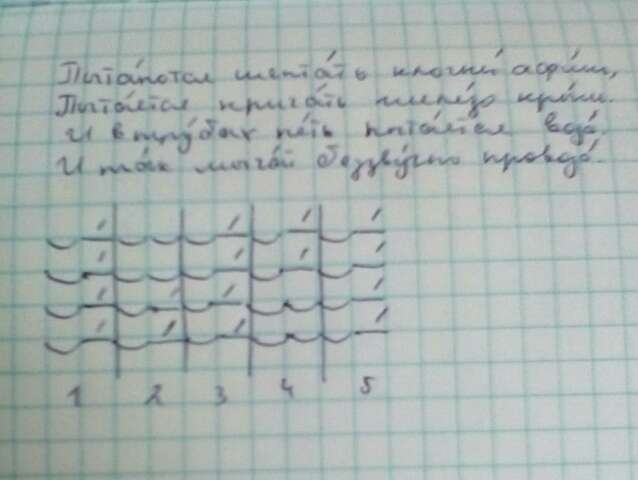 Пыта́ются шепта́ть клочки́ афи́ш,
Пыта́ется крича́ть желе́зо кры́ш.
И в тру́бах пе́ть пыта́ется вода́.
И та́к мыча́т беззву́чно провода́.
1 2 3 4 5